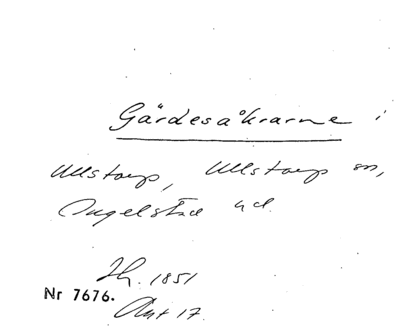 Gärdesåkrarne i
Ullstorp, Ullstorp sn,
Ingelstad hd.
1851
Nr 7676.
Akt 17.